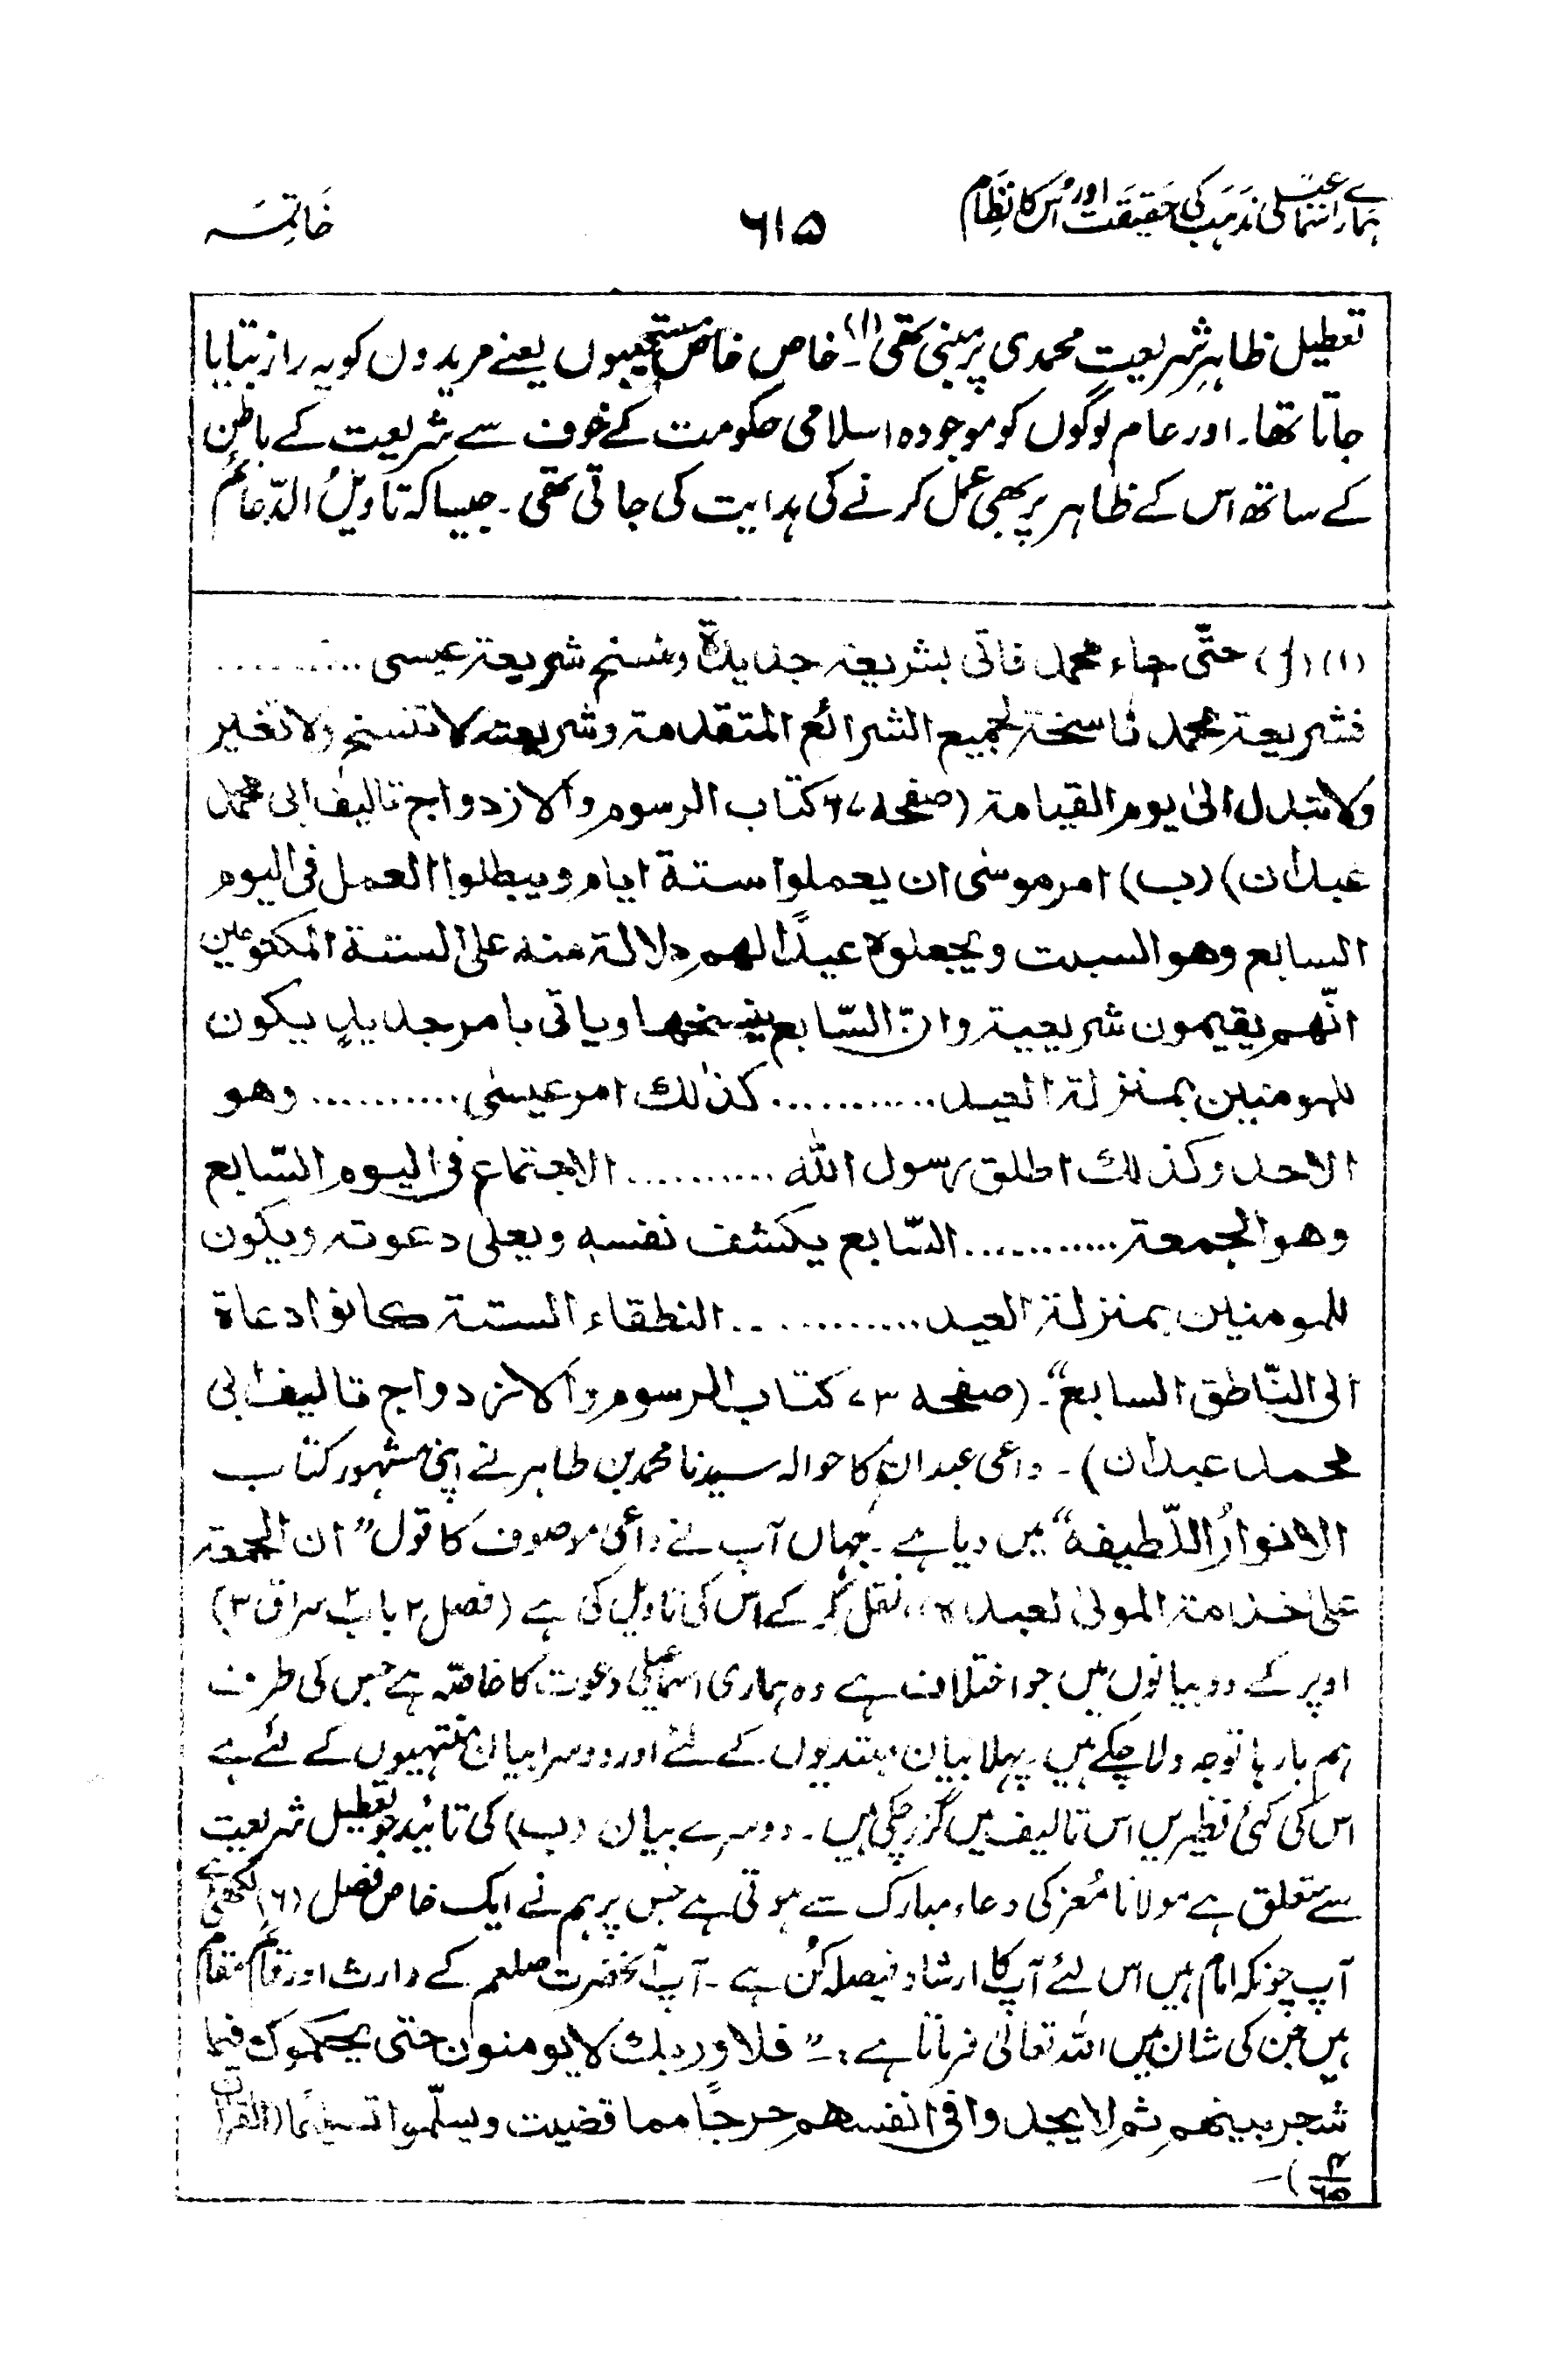 ہمارے اسماعیلی مذہب کی حقیقت اور اُس کا نظام
۶۱۵
خاتمہ
تعطیل ظاہرِ شریعتِ محمدی پر مبنی تھی (۱)۔ خاص خاص مستجیبوں یعنے مریدون کو یہ راز بتایا
جاتا تھا۔ اور عام لوگوں کو موجودہ اسلامی حکومت کے خوف سے شریعت کے باطن
کے ساتھ اس کے ظاہر پر بھی عمل کرنے کی ہدایت کی جاتی تھی۔ جیسا کہ تاویلُ الدّعائم
(۱) (ا) حتّٰی جاء محمد فاتی بشریعۃ جدیدۃ ونسخ شریعۃ عیسی ..........
فشریعۃ محمد ناسخۃ لجمیع الشرائع المتقدمۃ وشریعتہ لا تنسخ ولا تغیر
ولا تبدل الیٰ یوم القیامۃ (صفحہ ۶۷ کتاب الرسوم والازدواج تالیف ابی محمد
عبدان) (ب) امر موسٰی ان یعملوا ستۃ ایام ویبطلوا العمل فی الیوم
السابع وھو السبت ویجعلوہ عیدًا لھم دلالۃ منہ علی الستۃ المکتومین
انّھم یقیمون شریعیۃ وانّ السّابع ینسخھا ویاتی بامر جدیدٍ یکون
للمومنین بمنزلۃ العید........... کذٰلک امر عیسٰی.......... وھو
الاحد وکذلک اطلق رسول اللہ .......... الاجتماع فی الیوم السّابع
وھو الجمعۃ........... السّابع یکشف نفسہ ویعلی دعوتہ ویکون
للمومنین بمنزلۃ العید............ النطقاء الستۃ کانوا دعاۃ
الی النّاطق السابع“۔ (صفحہ ۷۳ کتاب الرسوم والازدواج تالیف ابی
محمد عبدان)۔ داعی عبدان کا حوالہ سیدنا محمد بن طاہر نے اپنی مشہور کتاب
الانوارُ اللّطیفہ“ میں دیا ہے۔ جہاں آپ نے داعی موصوف کا قول ”ان الجمعۃ
علیٰ خدامۃ المولیٰ لعبدہ“ نقل کر کے اس کی تاویل کی ہے (فصل ۲ باب سراق ۳)
اوپر کے دو بیانوں میں جو اختلاف ہے وہ ہماری اسماعیلی دعوت کا خاصّہ ہے جس کی طرف
ہم بارہا توجہ دلا چکے ہیں۔ پہلا بیان مبتدیوں کے لئے اور دوسرا بیان منتہیوں کے لئے ہے
اس کی کئی نظیریں اس تالیف میں گزر چکی ہیں۔ دوسرے بیان (ب) کی تائید جو تعطیل شریعت
سے متعلق ہے مولانا مُعز کی دعاء مبارک سے ہوتی ہے جس پر ہم نے ایک خاص فصل (۶) لکھی ہے
آپ چونکہ امام ہیں اس لئے آپ کا ارشاد فیصلہ کُن ہے۔ آپ آنحضرت صلعم کے وارث اور قائم مقام
ہیں جن کی شان میں اللہ تعالیٰ فرماتا ہے:۔ ”فلا وربک لا یومنون حتی یحکموک فیما
شجر بینھم ثم لا یجدوا فی انفسھم حرجًا مما قضیت ویسلّموا تسلیمًا (القرآن
۴/۶۵)۔